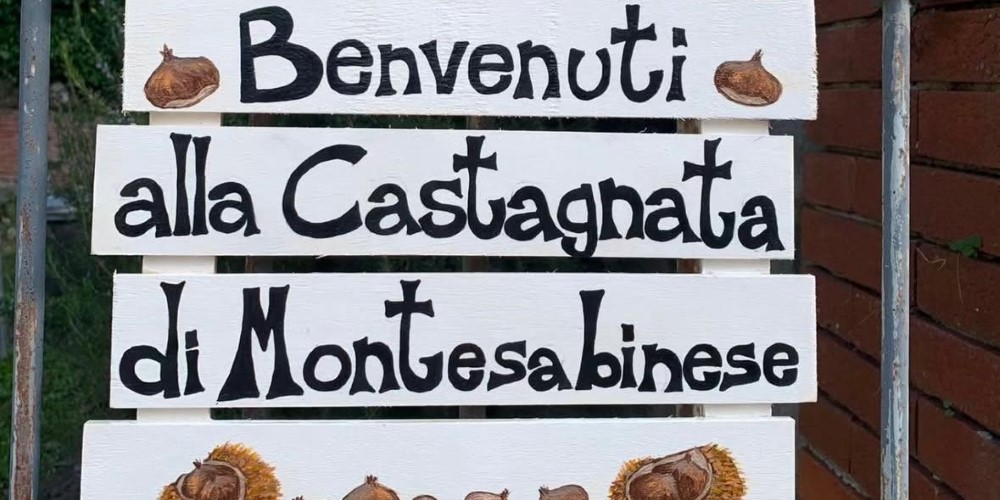 Benvenuti
alla Castagnata
di Montesabinese